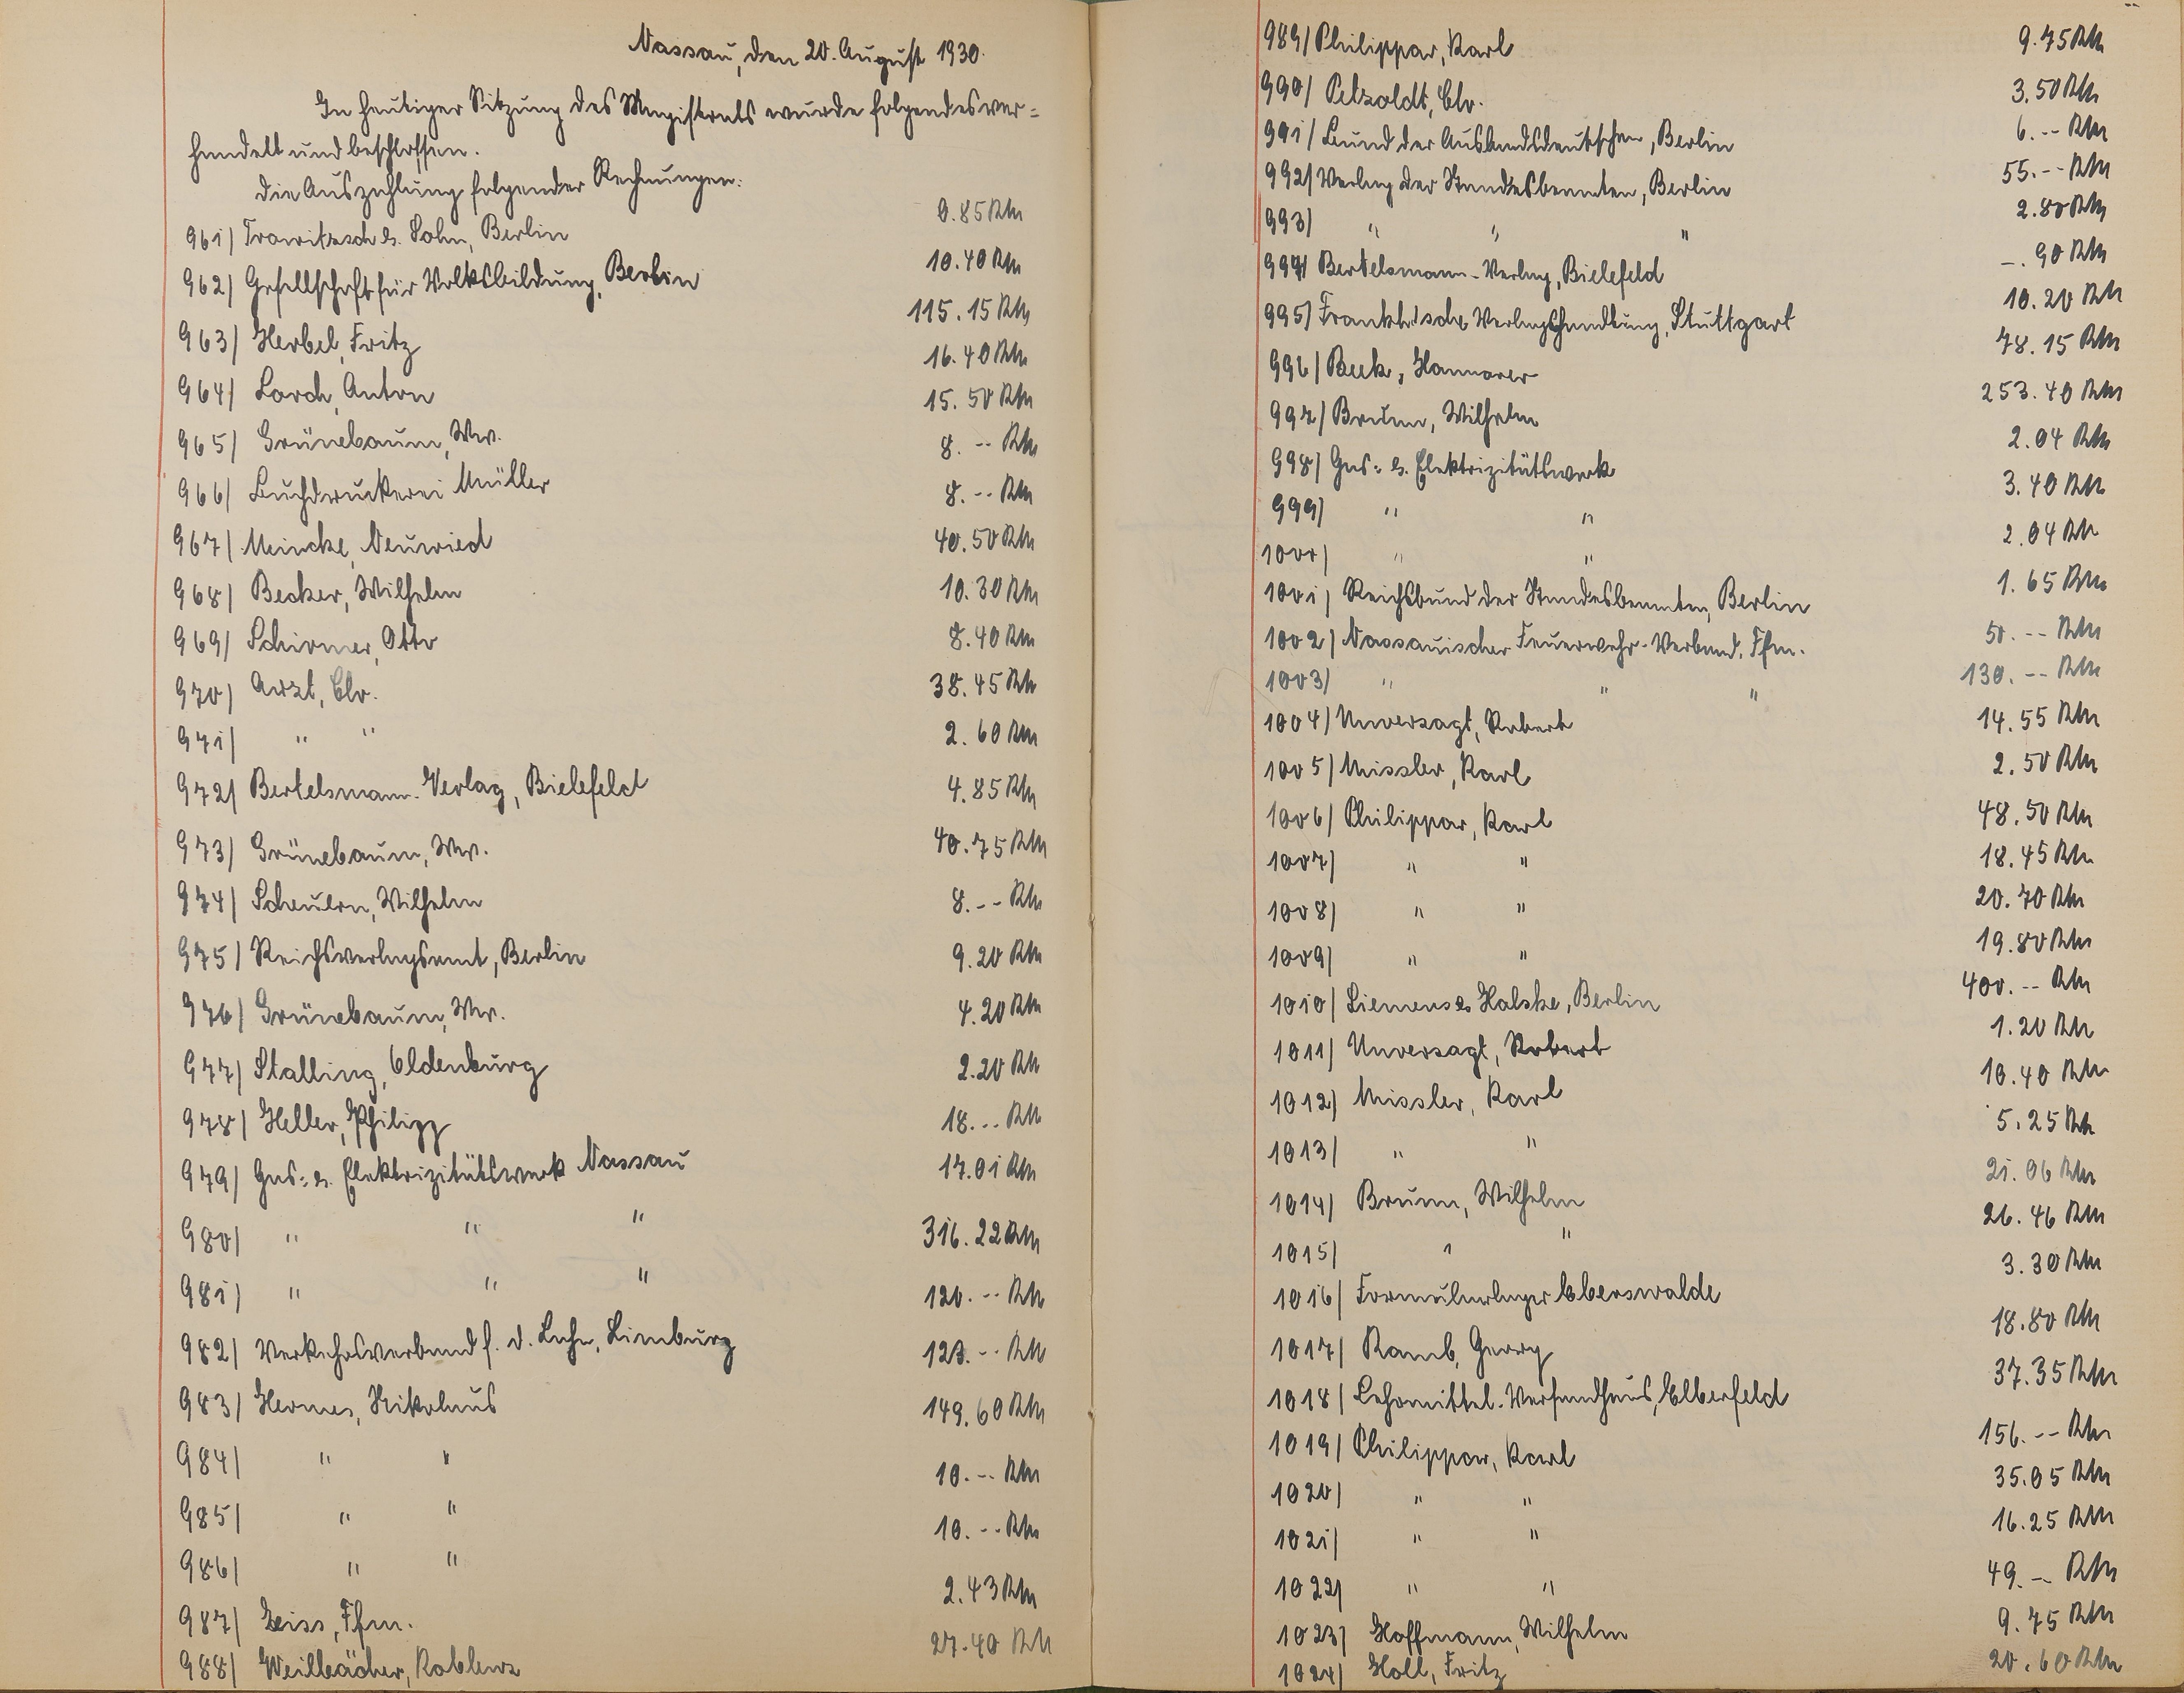 Nassau, den 20. August 1930.
In heutiger Sitzung des Magistrats wurde folgendes ver=
handelt und beschlossen.
Die Auszahlung folgender Rechnungen:
961) Trowitzsch & Sohn, Berlin 9.85 RM
962) Gesellschaft für Volksbildung, Berlin 10.40 RM
963) Herbel, Fritz 115.15 RM
964) Lorch, Anton 16.40 RM
965) Grünebaum, Ww. 15.50 RM
966) Buchdruckerei Müller 8.-- RM
967) Meincke, Neuwied 8.-- RM
968) Becker, Wilhelm 40.50 RM
969) Schirmer, Otto 10.30 RM
970) Arzt, Chr. 8.40 RM
971) " " 38.45 RM
972) Bertelsmann-Verlag, Bielefeld 2.60 RM
973) Grünebaum, Ww. 4.85 RM
974) Scheuern, Wilhelm 40.75 RM
975) Reichsverlagsamt, Berlin 8.-- RM
976) Grünebaum, Ww. 9.20 RM
977) Stalling, Oldenburg 4.20 RM
978) Heller, Philipp 2.20 RM
979) Gas- & Elektrizitätswerk Nassau 18.-- RM
980) " " " 17.01 RM
981) " " " 316.22 RM
982) Verkehrsverband f. d. Lahn, Limburg 120.-- RM
983) Hermes, Nikolaus 123.-- RM
984) " " 149.60 RM
985) " " 10.-- RM
986) " " 10.-- RM
987) Zeiss, Ffm. 2.43 RM
988) Weilbächer, Koblenz 27.40 RM
989) Philippar, Karl 9.75 RM
990) Petzoldt, Chr. 3.50 RM
991) Bund der Auslandsdeutschen, Berlin 6.-- RM
992) Verlag der Standesbeamten, Berlin 55.-- RM
993) " " " 2.80 RM
994) Bertelsmann-Verlag, Bielefeld -.90 RM
995) Frankh'sche Verlagshandlung, Stuttgart 10.20 RM
996) Beek, Hannover 78.15 RM
997) Brunn, Wilhelm 253.40 RM
998) Gas- & Elektrizitätswerk 2.04 RM
999) " " 3.40 RM
1000) " " 2.04 RM
1001) Reichsbund der Standesbeamten, Berlin 1.65 RM
1002) Nassauischer Feuerwehr-Verband, Ffm. 50.-- RM
1003) " " " 130.-- RM
1004) Unverzagt, Robert 14.55 RM
1005) Missler, Karl 2.50 RM
1006) Philippar, Karl 48.50 RM
1007) " " 18.45 RM
1008) " " 20.70 RM
1009) " " 19.80 RM
1010) Siemens & Halske, Berlin 400.-- RM
1011) Unverzagt, Robert 1.20 RM
1012) Missler, Karl 10.40 RM
1013) " " 5.25 RM
1014) Brunn, Wilhelm 21.06 RM
1015) " " 26.46 RM
1016) Formularlager Eberswalde 3.30 RM
1017) Ramb, Georg 18.80 RM
1018) Lehrmittel-Versandhaus, Elberfeld 37.35 RM
1019) Philippar, Karl 156.-- RM
1020) " " 35.05 RM
1021) " " 16.25 RM
1022) " " 49.-- RM
1023) Hoffmann, Wilhelm 9.75 RM
1024) Holl, Fritz 20.60 RM